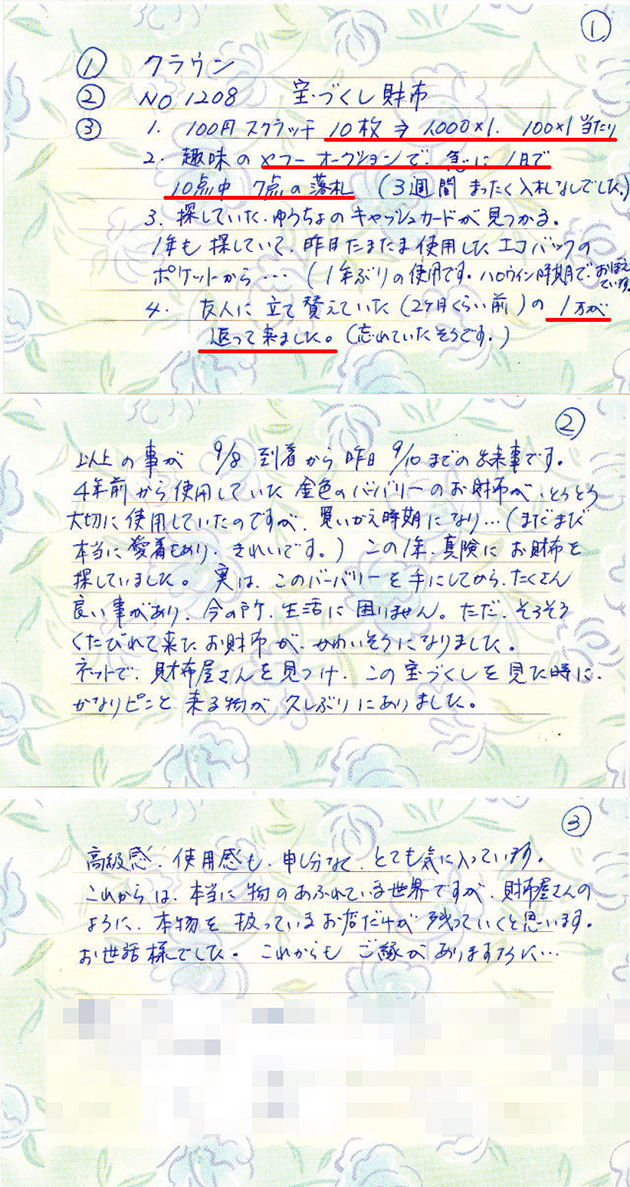 ①
① クラウン
② NO 1208 宝づくし財布
③ 1. 100円スクラッチ 10枚⇒1,000×1. 100×1 当たり
2. 趣味のヤフーオークションで、急に1日で
10点中 7点の落札 (3週間 まったく入札なしでした。)
3. 探していた、ゆうちょのキャッシュカードが見つかる。
1年も探していて、昨日たまたま使用したエコバックの
ポケットから・・・・ (1年ぶりの使用です。ハロウィン時期でおぼえています。
4. 友人に立て替えていた(2ヶ月くらい前)の1万が
返って来ました。(忘れていたそうです。)
②
以上の事が 9/8 到着から昨日 9/10 までの出来事です。
4年前から使用していた 金色のバーバリーのお財布が、とうとう
大切に使用していたのですが、買いかえ時期になり…(まだまだ
本当に愛着もあり、きれいです。)この1年、真険にお財布を
探していました。実は、このバーバリーを手にしてから、たくさん
良い事があり、今の所、生活に困りません。ただ、そろそろ
くたびれて来たお財布が、かわいそうになりました。
ネットで、財布屋さんを見つけ、この宝づくしを見た時に、
かなりピンと来る物が久しぶりにありました。
③
高級感、使用感も、申し分なく、とても気に入っています。
これからは、本当に物のあふれている世界ですが、財布屋さんの
ように、本物を扱っているお店だけが残っていくと思います。
お世話様でした。これからもご縁がありますように…